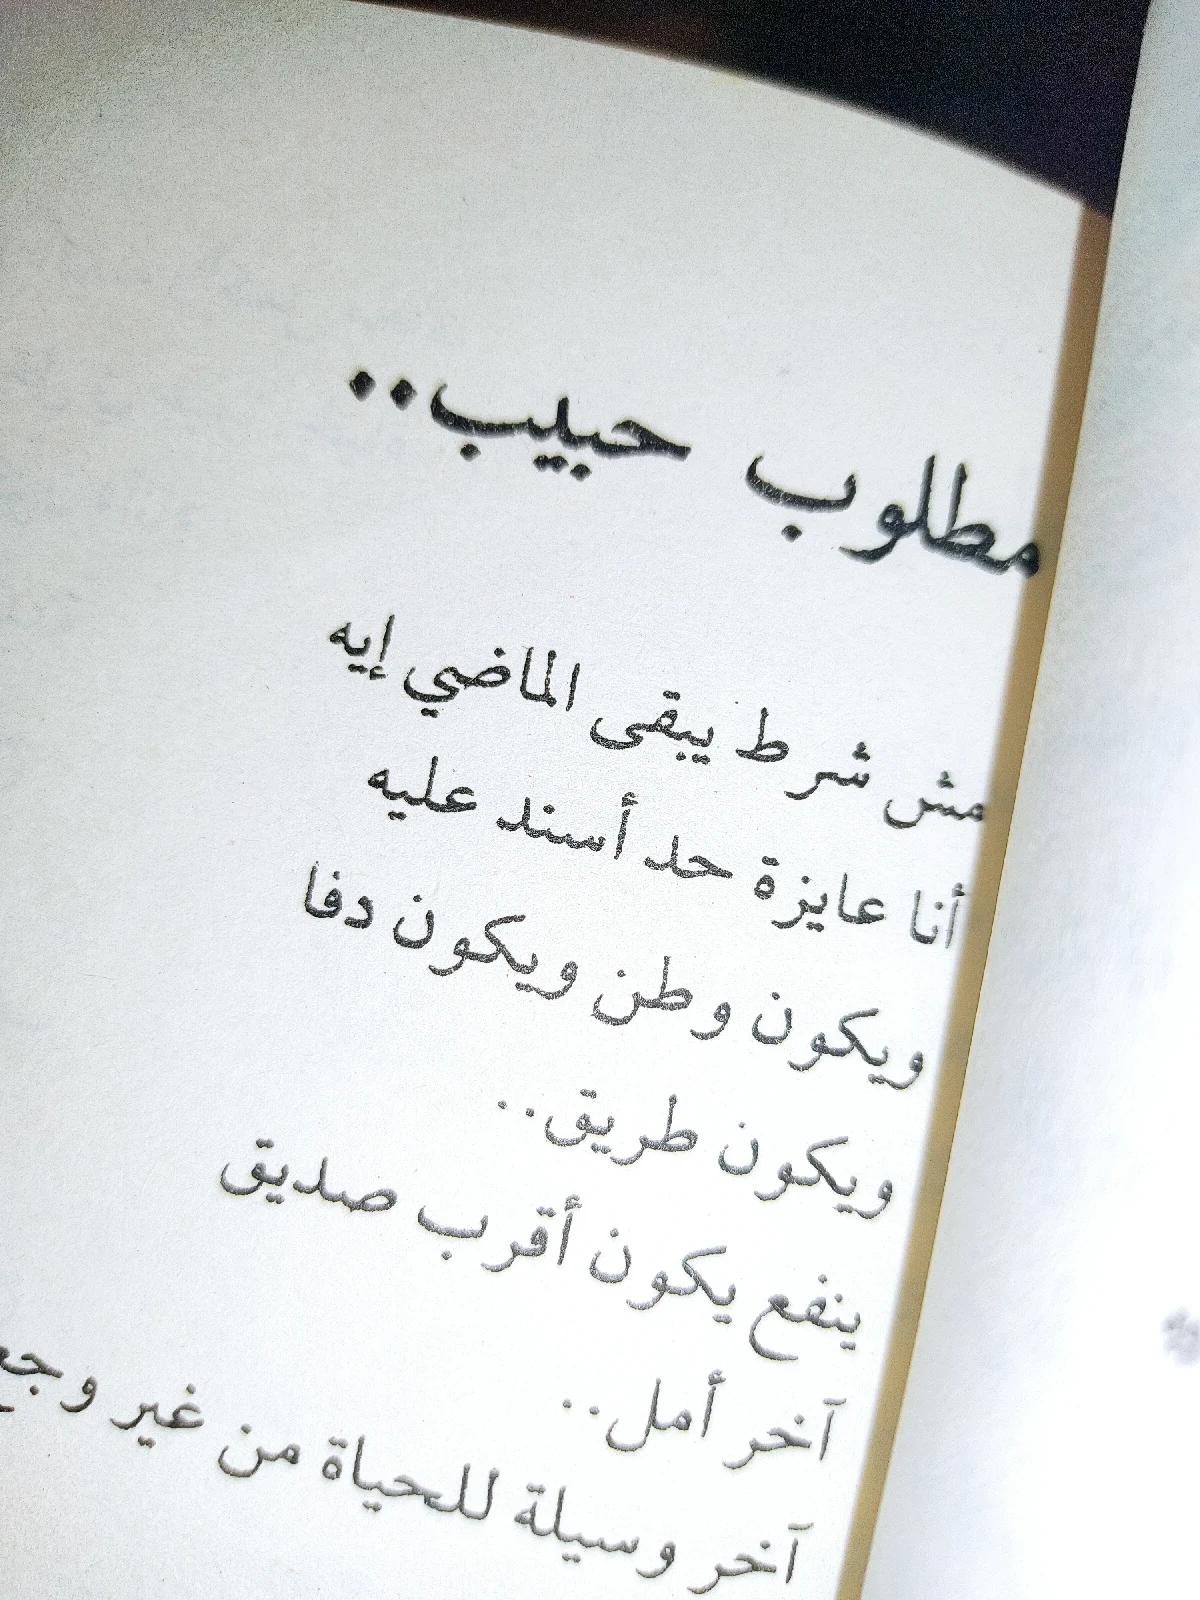 مطلوب حبيب..
مش شرط يبقى الماضي إيه
أنا عايزة حد أسند عليه
ويكون وطن ويكون دفا
ويكون طريق..
ينفع يكون أقرب صديق
آخر أمل..
آخر وسيلة للحياة من غير وجع